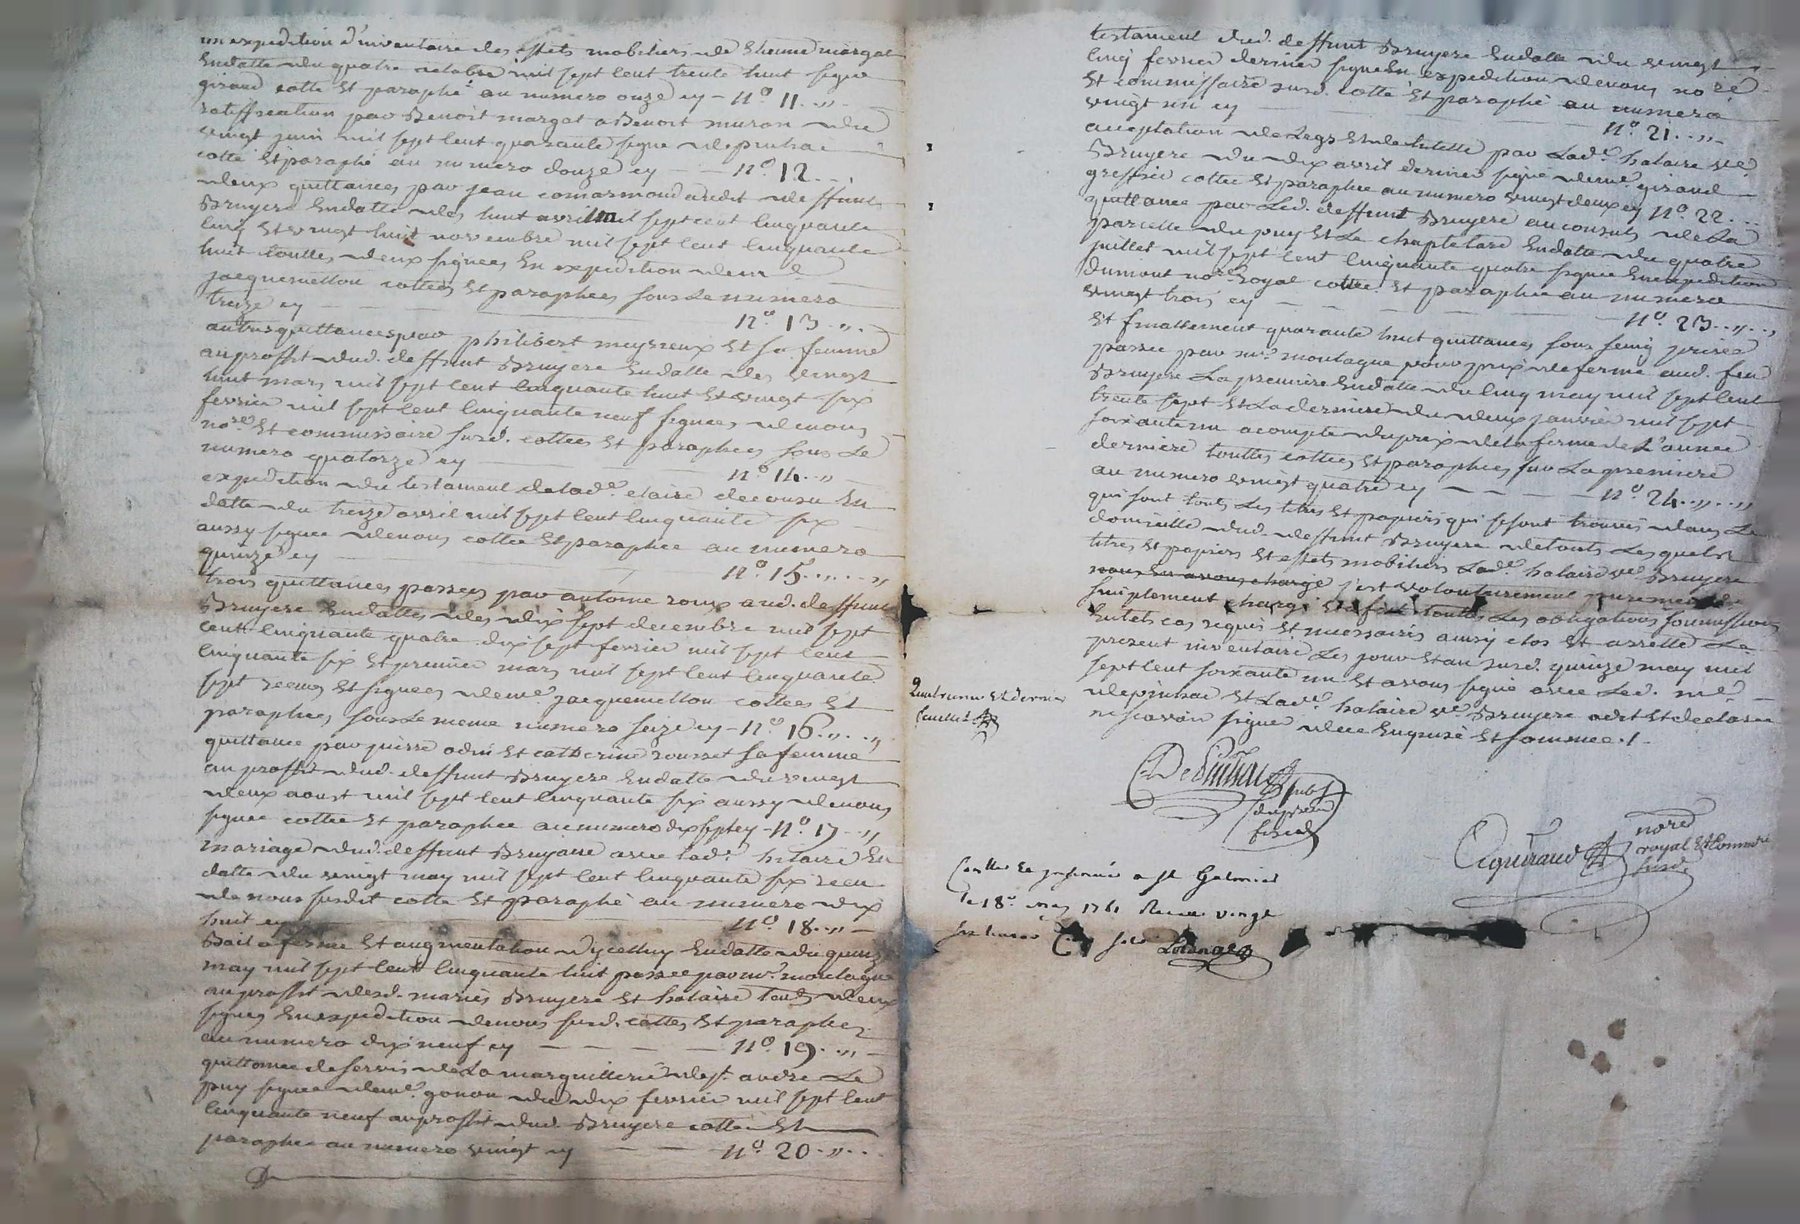 un expedition d'inventaire des effets mobiliers de Etienne margat
Endatte du quatre octobre mil sept Cent trente huit signé
giraud cotte Et paraphé au numero onze cy - n.º 11.,,.
ratiffication par Benoit margat a Benoit muron du
vingt juin mil sept Cent quarante signe depinhac
cotté Et paraphé au numero douze cy — n.º 12..,
deux quittances par jean comarmond audit deffunt
Bruyere Endatte des huit avril mil sept cent Cinquante
Cinq Et vingt huit novembre mil sept Cent Cinquante
huit touttes deux signees En expedition de m.e
jacquemetton cottées Et paraphees sous Le numero
treize cy — n.º 13.,,.
autres quittances par philibert meyrieux Et sa femme
au proffit dud. deffunt Bruyere Endatte des vingt
huit mars mil sept Cent Cinquante huit Et vingt six
fevrier mil sept Cent Cinquante neuf signees de nous
no.re Et commissaire susd. cottees Et paraphees sous Le
numero quatorze cy — n.º 14.,,
expedition du testament de lad.e claire decousu En
datte du treize avril mil sept Cent Cinquante six
aussy signee de nous cottee Et paraphee au numero
quinze cy — n.º 15.,,..,,
trois quittances passees par antoine roux aud. deffunt
Bruyere Endattes des dix sept decembre mil sept
Cent Cinquante quatre dix sept fevrier mil sept Cent
Cinquante six Et premier mars mil sept Cent Cinquante
sept receus Et signees de m.e jacquemetton cottees Et
paraphees sous Le meme numero seize cy - n.º 16.,,..,,
quittance par pierre odin Et catherine rousset sa femme
au proffit dud. deffunt Bruyere Endatte du vingt
deux aoust mil sept Cent Cinquante six aussy de nous
signee cottee Et paraphee au numero dix sept cy - n.º 17 -,,
mariage dud. deffunt Bruyere avec lad.e hilaire En
datte du vingt may mil sept Cent Cinquante six receu
de nous susdit cotte Et paraphé au numero dix
huit cy — n.º 18.,,-
Bail a ferme Et augmentation d'ycelluy Endatte du quinze
may mil sept Cent Cinquante huit passee par m.r montagne
au proffit desd. mariés Bruyere Et halaire touts deux
signes En expedition de nous susd. cottes Et paraphes
au numero dix neuf cy — n.º 19.,,-
quittance de servis de La marguillerie de s.t andré Le
puy signee de m.e gonon du dix fevrier mil sept Cent
Cinquante neuf au proffit dud. Bruyere cottée Et
paraphee au numero vingt cy — n.º 20.,,..
testament dud. deffunt Bruyere Endatte du vingt
Cinq fevrier dernier signé En expedition de nous no.re
Et commissaire susd. cotté Et paraphé au numero
vingt un cy — n.º 21..,,-
acceptation de Legs Et de tutelle par Lad.e halaire v.ve
Bruyere du dix avril dernier signé de m.e giraud
greffier cottee Et paraphee au numero vingt deux cy n.º 22...
quittance par Led. deffunt Bruyere au consuls de La
parcelle du puy Et La chapletard Endatte du quatre
juillet mil sept Cent Cinquante quatre signee En expedition
dumont no.re royal cottée Et paraphee au numero
vingt trois cy — n.º 23..,,.,,
Et finallement quarante huit quittances sous seing privés
passee par m.r montagne pour prix de ferme aud. feu
Bruyere La premiere Endatte du Cinq may mil sept Cent
trente sept Et La derniere du deux janvier mil sept
soixante un acompte du prix de la ferme de L'annee
derniere touttes cottees Et paraphees sur La premiere
au numero vingt quatre cy — n.º 24..,,.,,
qui sont touts Les titres Et papiers qui se sont trouvés dans Le
domicille dud. deffunt Bruyere de touts Lesquels
titres Et papiers Et effets mobiliers Lad.e halaire v.ve Bruyere
s'est volontairement purement Et
simplement chargé Et a fait touttes Les obligations soumissions
En tels cas requis Et necessaires ainsy clos Et arretté Le
present inventaire Les jour Et an susd. quinze may mil
sept Cent soixante un Et avons signé avec Led. m.e
depinhac Et Lad.e halaire v.ve Bruyere a dit Et declaré
ne scavoir signer de ce Enquise Et sommee./.
Quatrieme Et dernier
feuillet
Depinhac subs.t
du procureur
fiscal
Agniraud no.re
royal Et Commre
susd.
Conllé Et insinué a st Galmier
le 18.e may 1761 Receu vingt
six